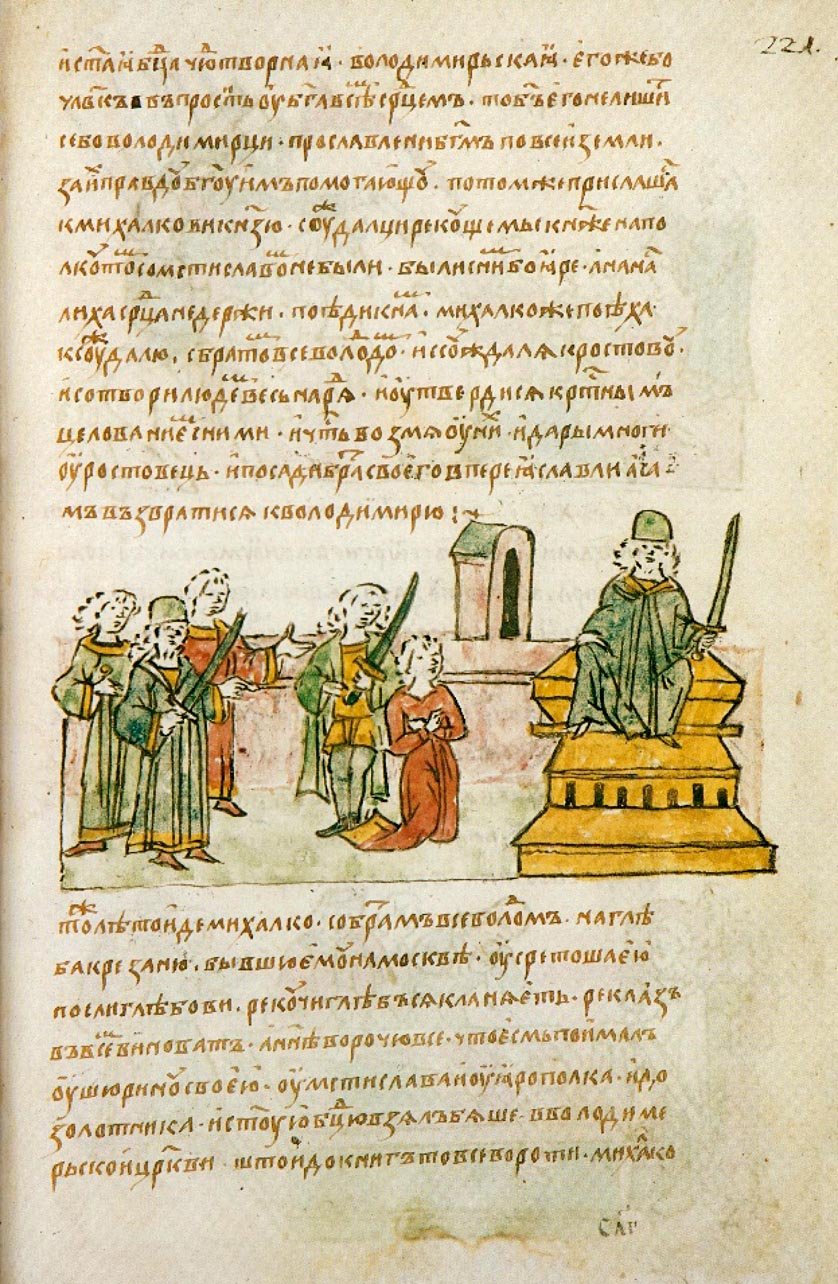 221.
и стаꙗ бц҃а чютворнаꙗ · володимирьскаꙗ · егоже бо
члв҃къ въпросить оу б҃га всѣ ср҃цемъ · то б҃ъ его не лишит
се бо володимирци · прославлени бг҃мъ по всеи земли ·
за их правдоу б҃гоу имъ помогающоу · потом же прислаша
к михалкови кнзю · соуждалци рекоуще мы с кнже на по
лкоу то со мстиславом не были · были с ним боꙗре · а на на
лиха ср҃ца не держи · поѣди к нам · михалко же поѣха
к соуждалю · с братом всеволодом · и ссоуждалꙗ к ростовоу ·
и сотвори людем весь нарꙗд · и оутвердисꙗ крⷭ҇тнымъ
целованиемъ с ними · и чть возмꙗ оу них · и дары многи
оу ростовець · и посади брата своего в переꙗславли а са
мъ възвратисꙗ к володимирю :~
тожⷤ лѣто иде михалко · со братомъ всеволодомъ · на глѣ
ба к резаню · бывшю емоу на москвѣ · оусретоша ею
посли глѣбови · рекоучи глѣбъ сѧ кланꙗеть · рекл азъ
въ всем виноватъ · а нн҃ѣ ворочю все · что есмь поималъ
оу шюриноу своею · оу мстислава и оу ꙗрополка · и до
золотника · и стоую бц҃ю взꙗлъ бꙗше · в володиме
рьскои црк҃ви · што и до книгъ то все вороти · михалко